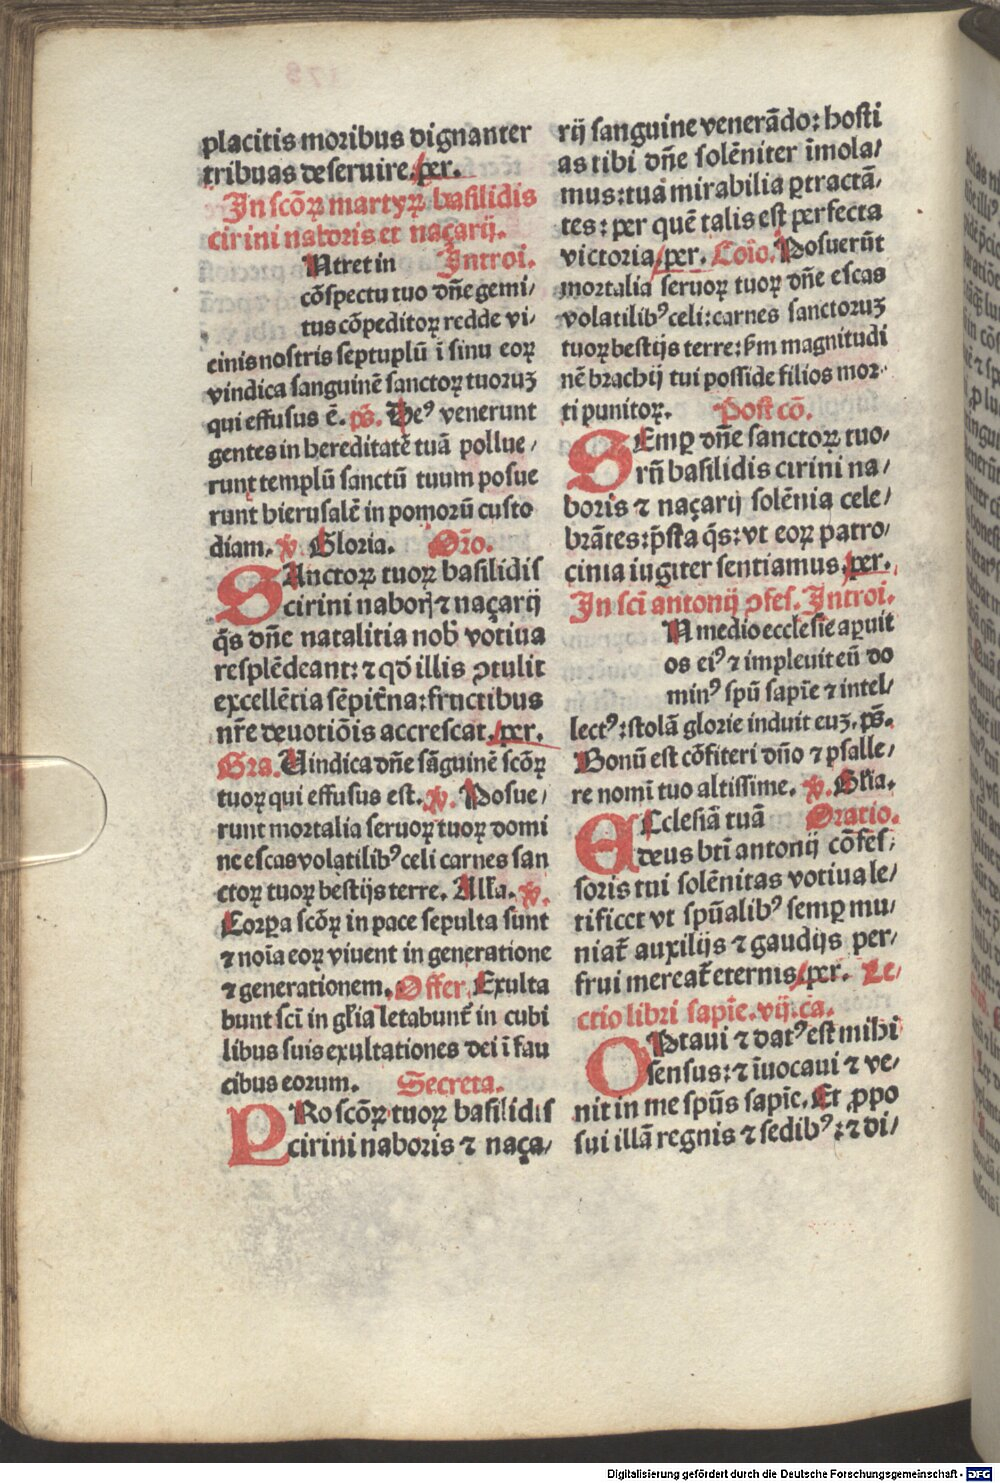 placitis moribus dignanter
tribuas deseruire. per.
In scõꝝ martyꝝ basilidis
cirini naboris et naçarij.
Ntret in Introi.
cõspectu tuo dñe gemi/
tus cõpeditoꝝ redde vi/
cinis nostris septuplũ ĩ sinu eoꝝ
vindica sanguinẽ sanctoꝝ tuoruꝫ
qui effusus ẽ. p̃s. Deꝰ venerunt
gentes in hereditatẽ tuã pollue/
runt templũ sanctũ tuum posue
runt hierusalẽ in pomorũ custo
diam. ℣. Gloria. Oro.
SAnctoꝝ tuoꝝ basilidis
cirini naborꝭ ⁊ naçarij
q̃s dñe natalitia nob̃ votiua
resplẽdeant: ⁊ qd̃ illis ꝯtulit
excellẽtia sẽpit̃na: fructibus
nr̃e deuotiõis accrescat. per.
Gra. Uindica dñe sãguinẽ scõꝝ
tuoꝝ qui effusus est. ℣. Posue/
runt mortalia seruoꝝ tuoꝝ domi
ne escas volatilibꝰ celi carnes san
ctoꝝ tuoꝝ bestijs terre. Alla. ℣.
Corꝑa scõꝝ in pace sepulta sunt
⁊ noĩa eoꝝ viuent in generatione
⁊ generationem. Offer. Exulta
bunt sci in gl̃ia letabunt̃ in cubi
libus suis exultationes dei ĩ fau
cibus eorum. Secreta.
PRo scõꝝ tuoꝝ basilidis
cirini naboris ⁊ naça/
rij sanguine venerãdo: hosti
as tibi dñe solẽniter ĩmola/
mus: tua mirabilia ꝑtractã/
tes: per quẽ talis est perfecta
victoria. per. Coĩo. Posuerũt
mortalia seruoꝝ tuoꝝ dñe escas
volatilibꝰ celi: carnes sanctoruꝫ
tuoꝝ bestijs terre: s̃m magnitudi
nẽ brachij tui posside filios mor-
ti punitoꝝ. Post cõ.
SEmꝑ dñe sanctoꝝ tuo/
rũ basilidis cirini na/
boris ⁊ naçarij solẽnia cele/
brãtes: p̃sta q̃s: vt eoꝝ patro/
cinia iugiter sentiamus. per.
In sci antonij ꝯfes. Introi.
N medio ecclesie aꝑuit
os eiꝰ ⁊ impleuit eũ do
minꝰ spũ sapĩe ⁊ intel/
lectꝰ: stolã glorie induit euꝫ. p̃s.
Bonũ est cõfiteri dño ⁊ psalle/
re nomĩ tuo altissime. ℣. Gl̃ia.
ECclesiã tuã Oratio.
deus bt̃i antonij cõfes/
soris tui solẽnitas votiua le/
tificet vt spũalibꝰ semꝑ mu/
niat̃ auxilijs ⁊ gaudijs per/
frui mereat̃ eternis. per. Le/
ctio libri sapĩe. vij. ca.
OPtaui ⁊ datꝰ est mihi
sensus: ⁊ ĩuocaui ⁊ ve/
nit in me spũs sapĩe. Et ꝓpo
sui illã regnis ⁊ sedibꝰ: ⁊ di/
Digitalisierung gefördert durch die Deutsche Forschungsgemeinschaft - DFG